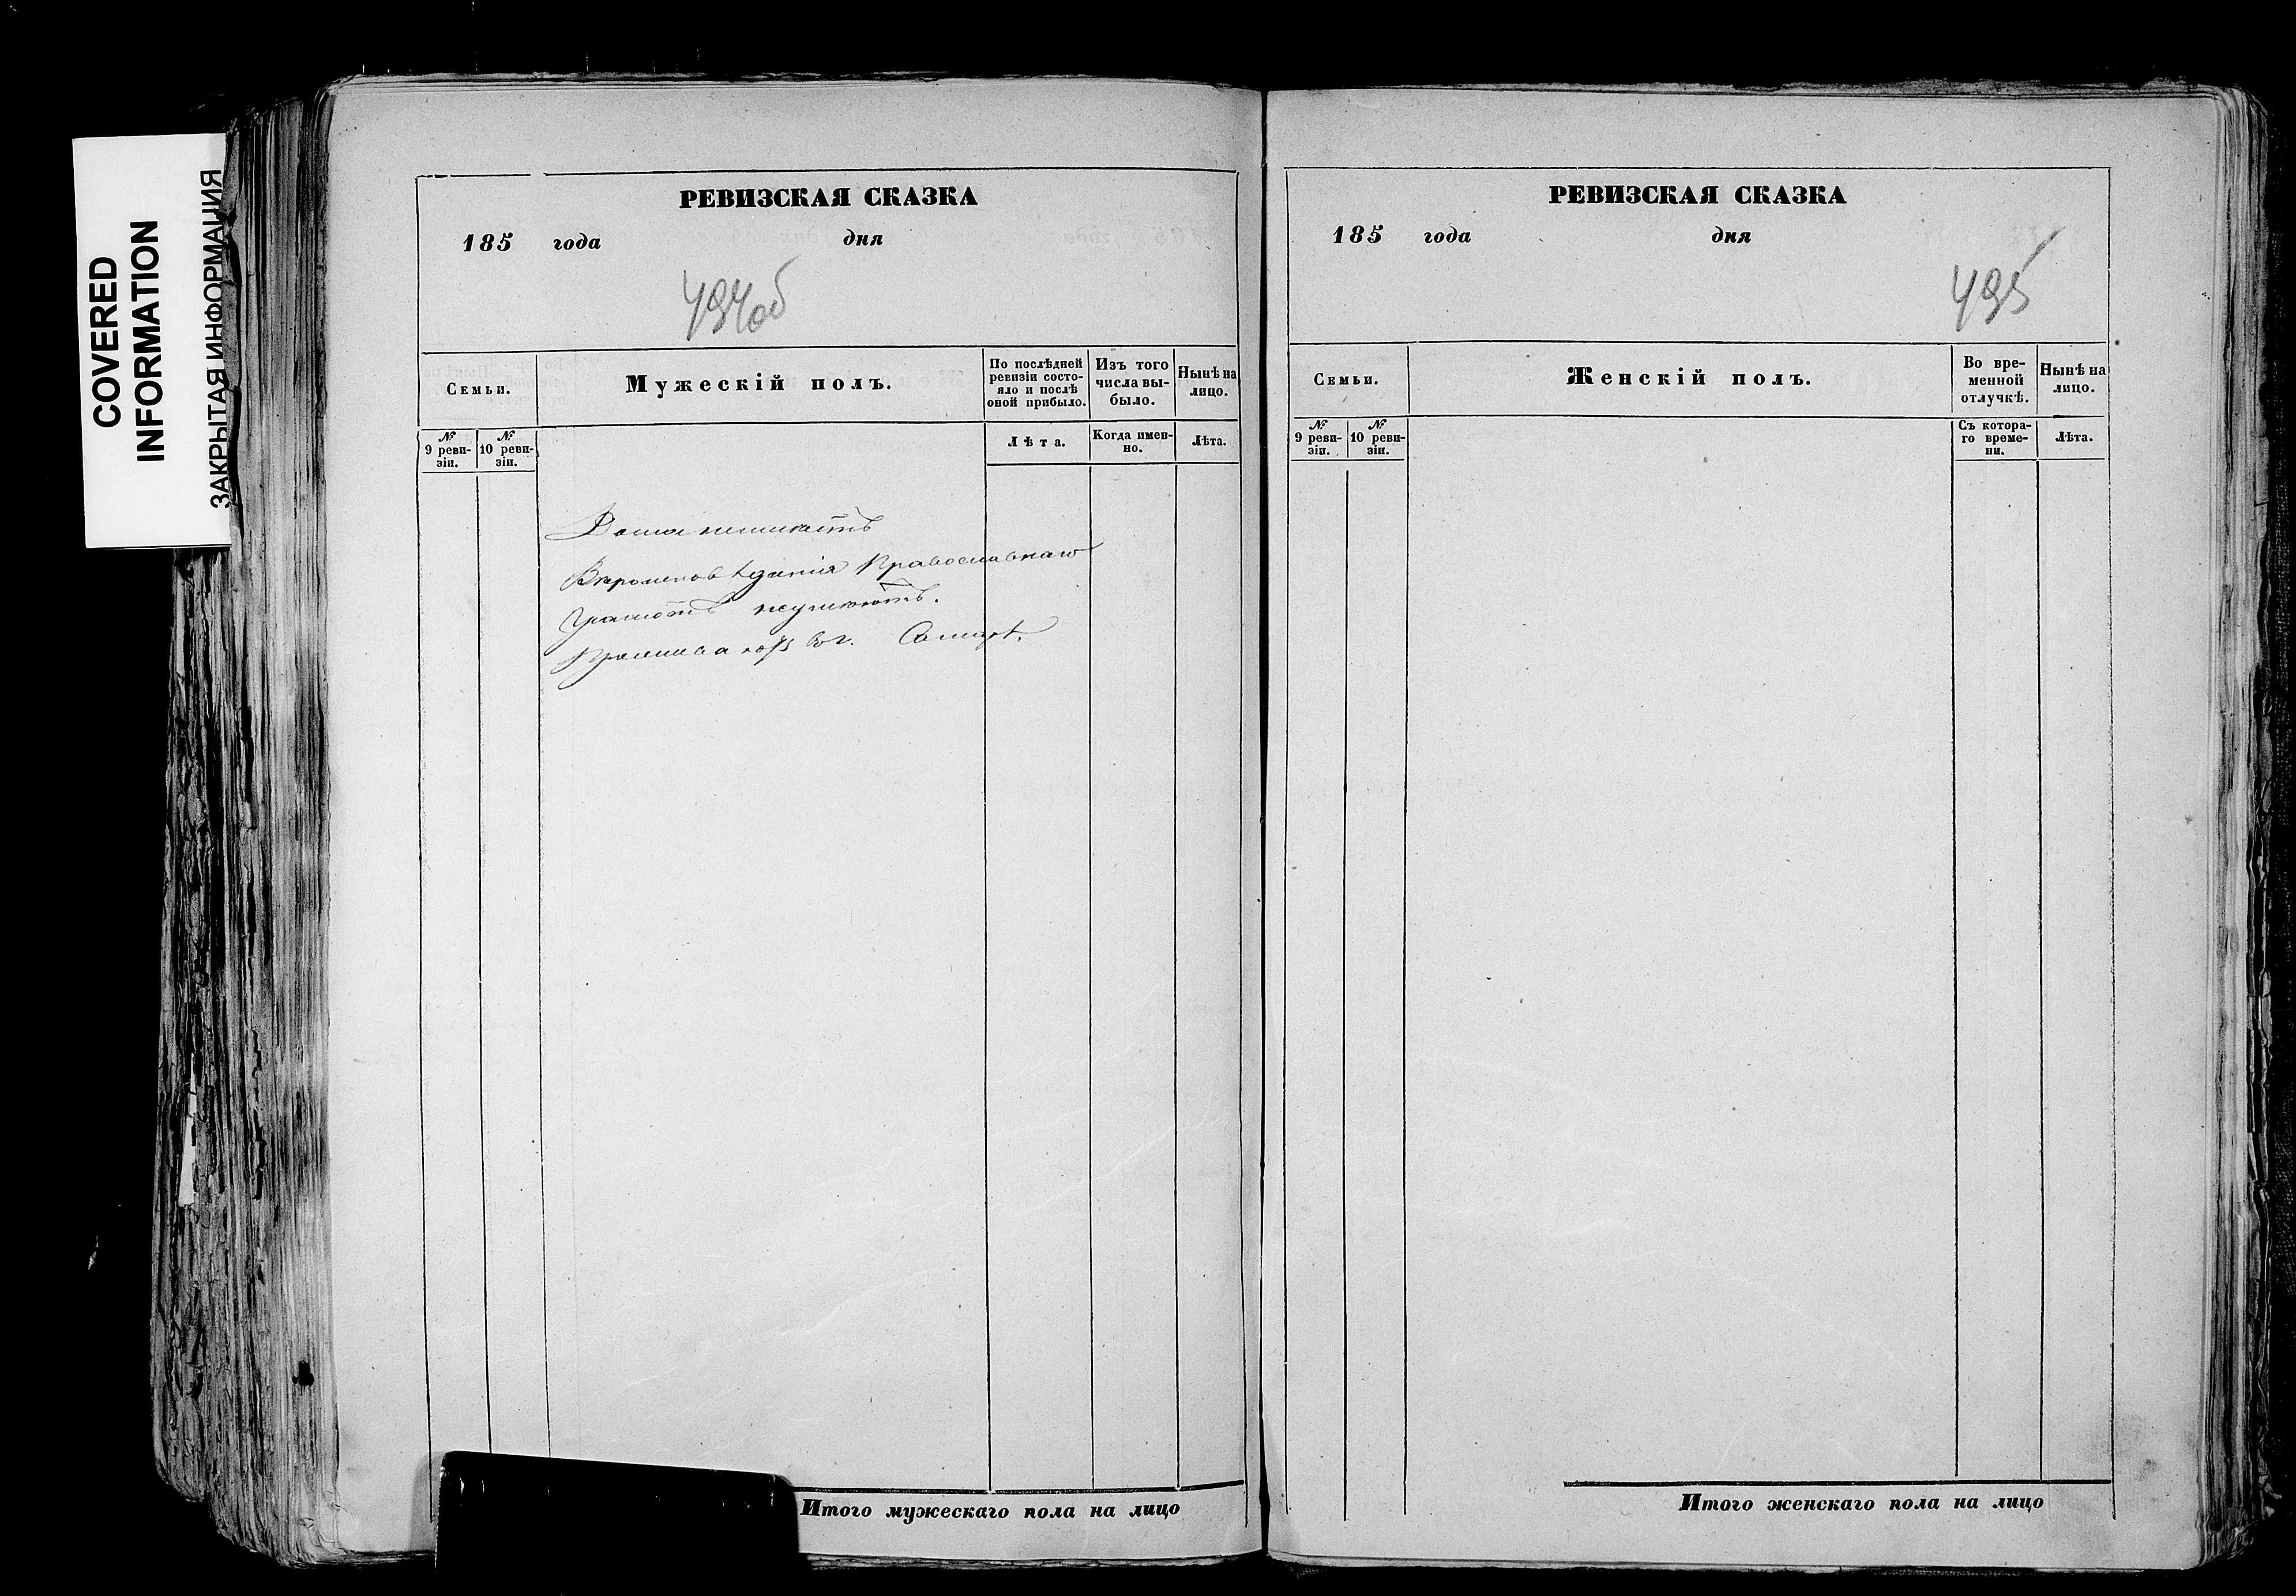 COVERED
INFORMATION
ЗАКРЫТАЯ ИНФОРМАЦИЯ
РЕВИЗСКАЯ СКАЗКА
185 года дня
494об
Семьи.
Мужескій полъ.
По послѣдней
ревизіи состо-
яло и послѣ
оной прибыло.
Изъ того
числа вы-
было.
Нынѣ на
лицо.
№
9 реви-
зіи.
№
10 реви-
зіи.
Лѣта.
Когда имен-
но.
Лѣта.
Вѣроисповѣданія Православнаго
Грамотѣ
въ г. Самарѣ
Итого мужескаго пола на лицо
РЕВИЗСКАЯ СКАЗКА
185 года дня
495
Семьи.
Женскій полъ.
Во вре-
менной
отлучкѣ.
Нынѣ на
лицо.
№
9 реви-
зіи.
№
10 реви-
зіи.
Съ котора-
го време-
ни.
Лѣта.
Итого женскаго пола на лицо